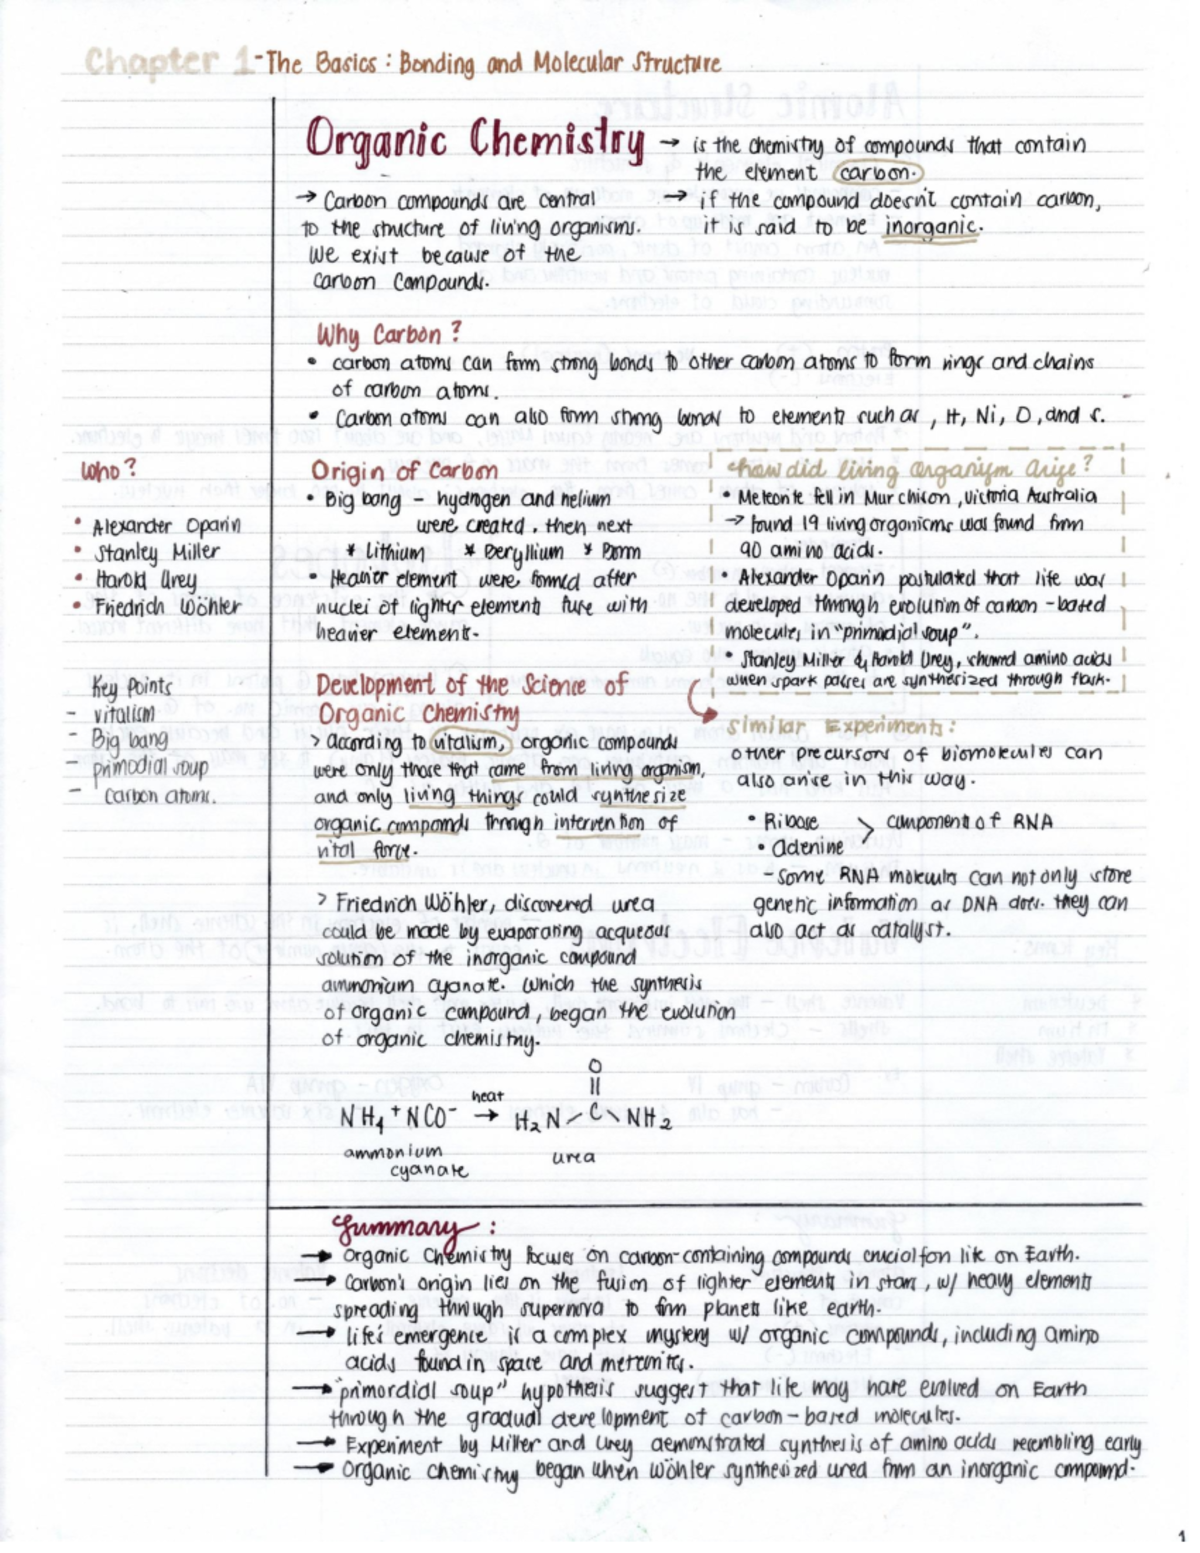 Chapter 1 - The Basics : Bonding and Molecular Structure
Organic Chemistry → is the chemistry of compounds that contain
the element carbon.
→ Carbon compounds are central
to the structure of living organisms.
We exist because of the
Carbon Compounds.
→ if the compound doesn't contain carbon,
it is said to be inorganic.
Why Carbon?
• carbon atoms can form strong bonds to other carbon atoms to form rings and chains
of carbon atoms.
• Carbon atoms can also form strong bonds to elements such as , H, Ni, O, and S.
Who?
• Alexander Oparin
• Stanley Miller
• Harold Urey
• Friedrich Wöhler
Key Points
- vitalism
- Big bang
- primodial soup
- carbon atoms.
Origin of Carbon
• Big bang - hydrogen and helium
were created, then next
* Lithium * Beryllium * Boron
• Heavier element were formed after
nuclei of lighter elements fuse with
heavier elements.
How did living organism arise?
• Meteorite fell in Murchison, Victoria Australia
→ found 19 living organisms was found from
90 amino acids.
• Alexander Oparin postulated that life was
developed through evolution of carbon-based
molecules in "primodial soup".
• Stanley Miller & Harold Urey, showed amino acids
when spark passes are synthesized through flask.
Development of the Science of
Organic Chemistry
> According to vitalism, organic compounds
were only those that came from living organism,
and only living things could synthesize
organic compounds through intervention of
vital force.
> Friedrich Wöhler, discovered urea
could be made by evaporating acqueous
solution of the inorganic compound
ammonium cyanate. Which the synthesis
of organic compound, began the evolution
of organic chemistry.
Similar Experiments:
other precursors of biomolecules can
also arise in this way.
• Ribose
• adenine > component of RNA
- Some RNA molecules can not only store
genetic information as DNA does. they can
also act as catalyst.
O
||
NH4+NCO- heat → H2N / C \ NH2
ammonium
cyanate
urea
Summary:
→ Organic Chemistry focuses on carbon-containing compounds crucial for life on Earth.
→ Carbon's origin lies on the fusion of lighter elements in stars, w/ heavy elements
spreading through supernova to form planets like earth.
→ life's emergence is a complex mystery w/ organic compounds, including amino
acids found in space and meteorites.
→ "primordial soup" hypothesis suggest that life may have evolved on Earth
through the gradual development of carbon-based molecules.
→ Experiment by Miller and Urey demonstrated synthesis of amino acids resembling early
→ Organic chemistry began when Wöhler synthesized urea from an inorganic compound.
1